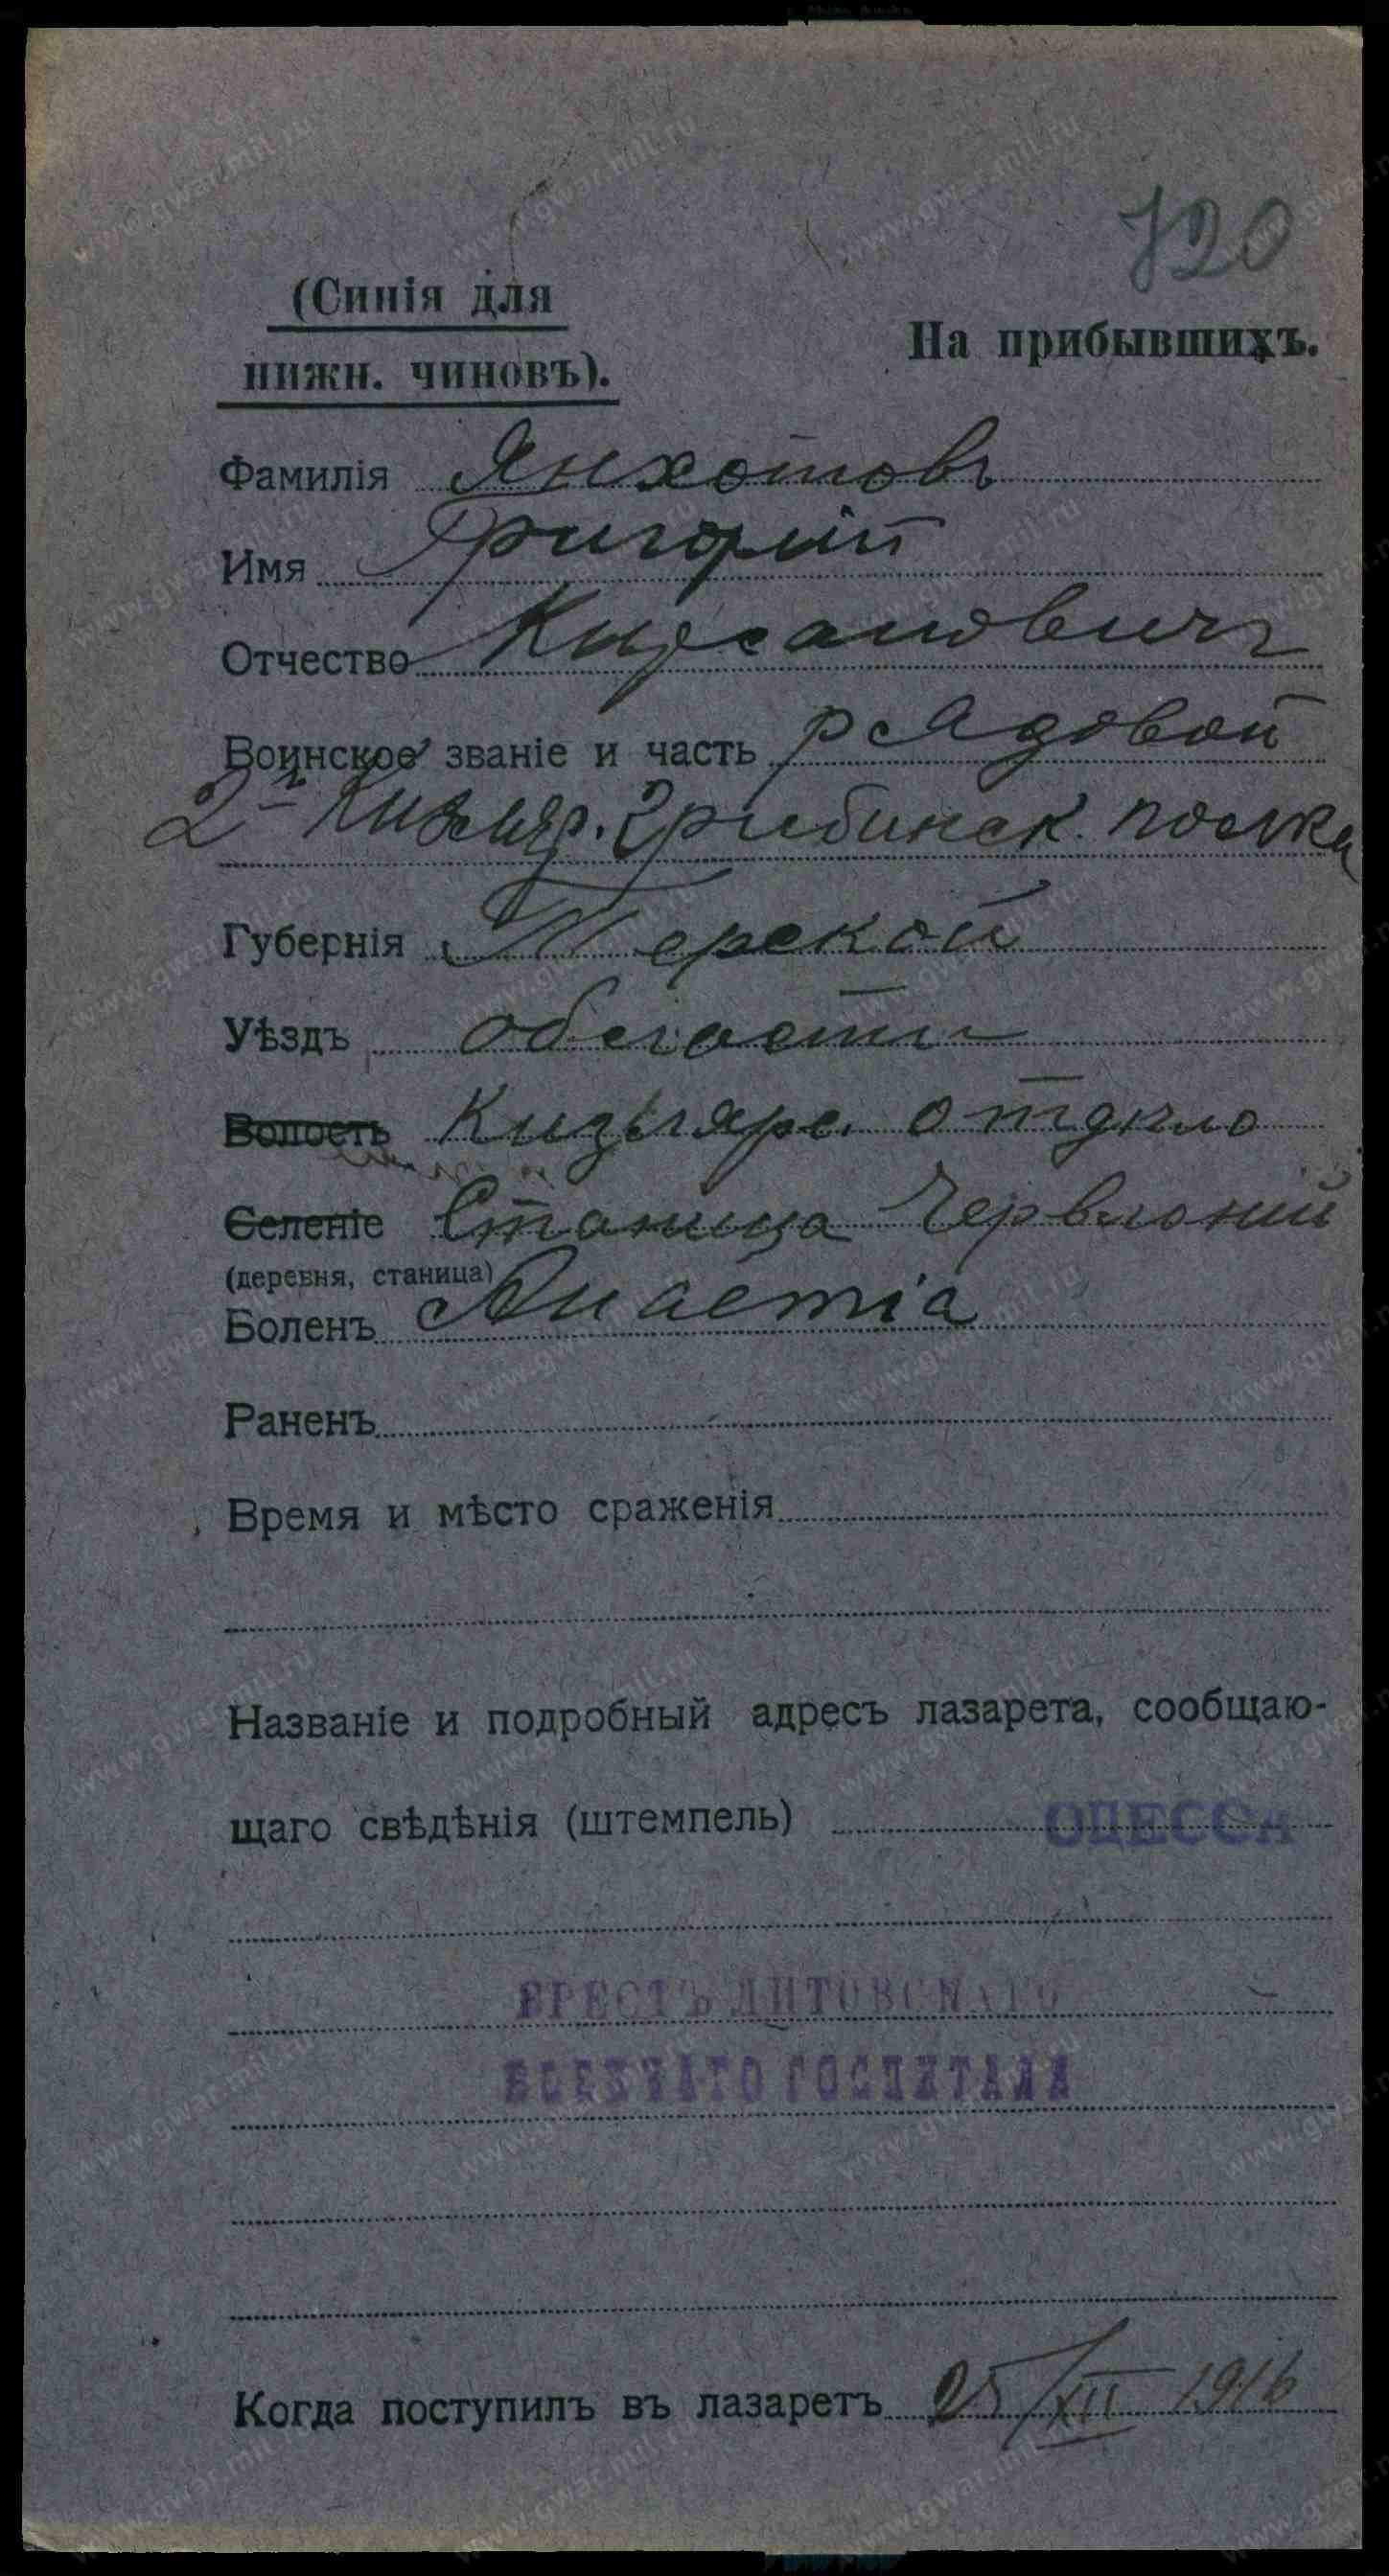 720
(Синія для
нижн. чиновъ).
На прибывшихъ.
Фамилія Янхотовъ
Имя Григорій
Отчество Кирсановичъ
Воинское званіе и часть рядовой
2й Кизляр. Гребинск. полка
Губернія Терской
Уѣздъ области
Волость Кизлярс. отдѣло
Селеніе Станица Червлоний
(деревня, станица)
Боленъ Anaemia
Раненъ
Время и мѣсто сраженія
Названіе и подробный адресъ лазарета, сообщаю-
щаго свѣдѣнія (штемпель) ОДЕССА
БРЕСТЪ ЛИТОВСКАГО
ВОЕННАГО ГОСПИТАЛЯ
Когда поступилъ въ лазаретъ 25/XII 1916
www.gwar.mil.ru